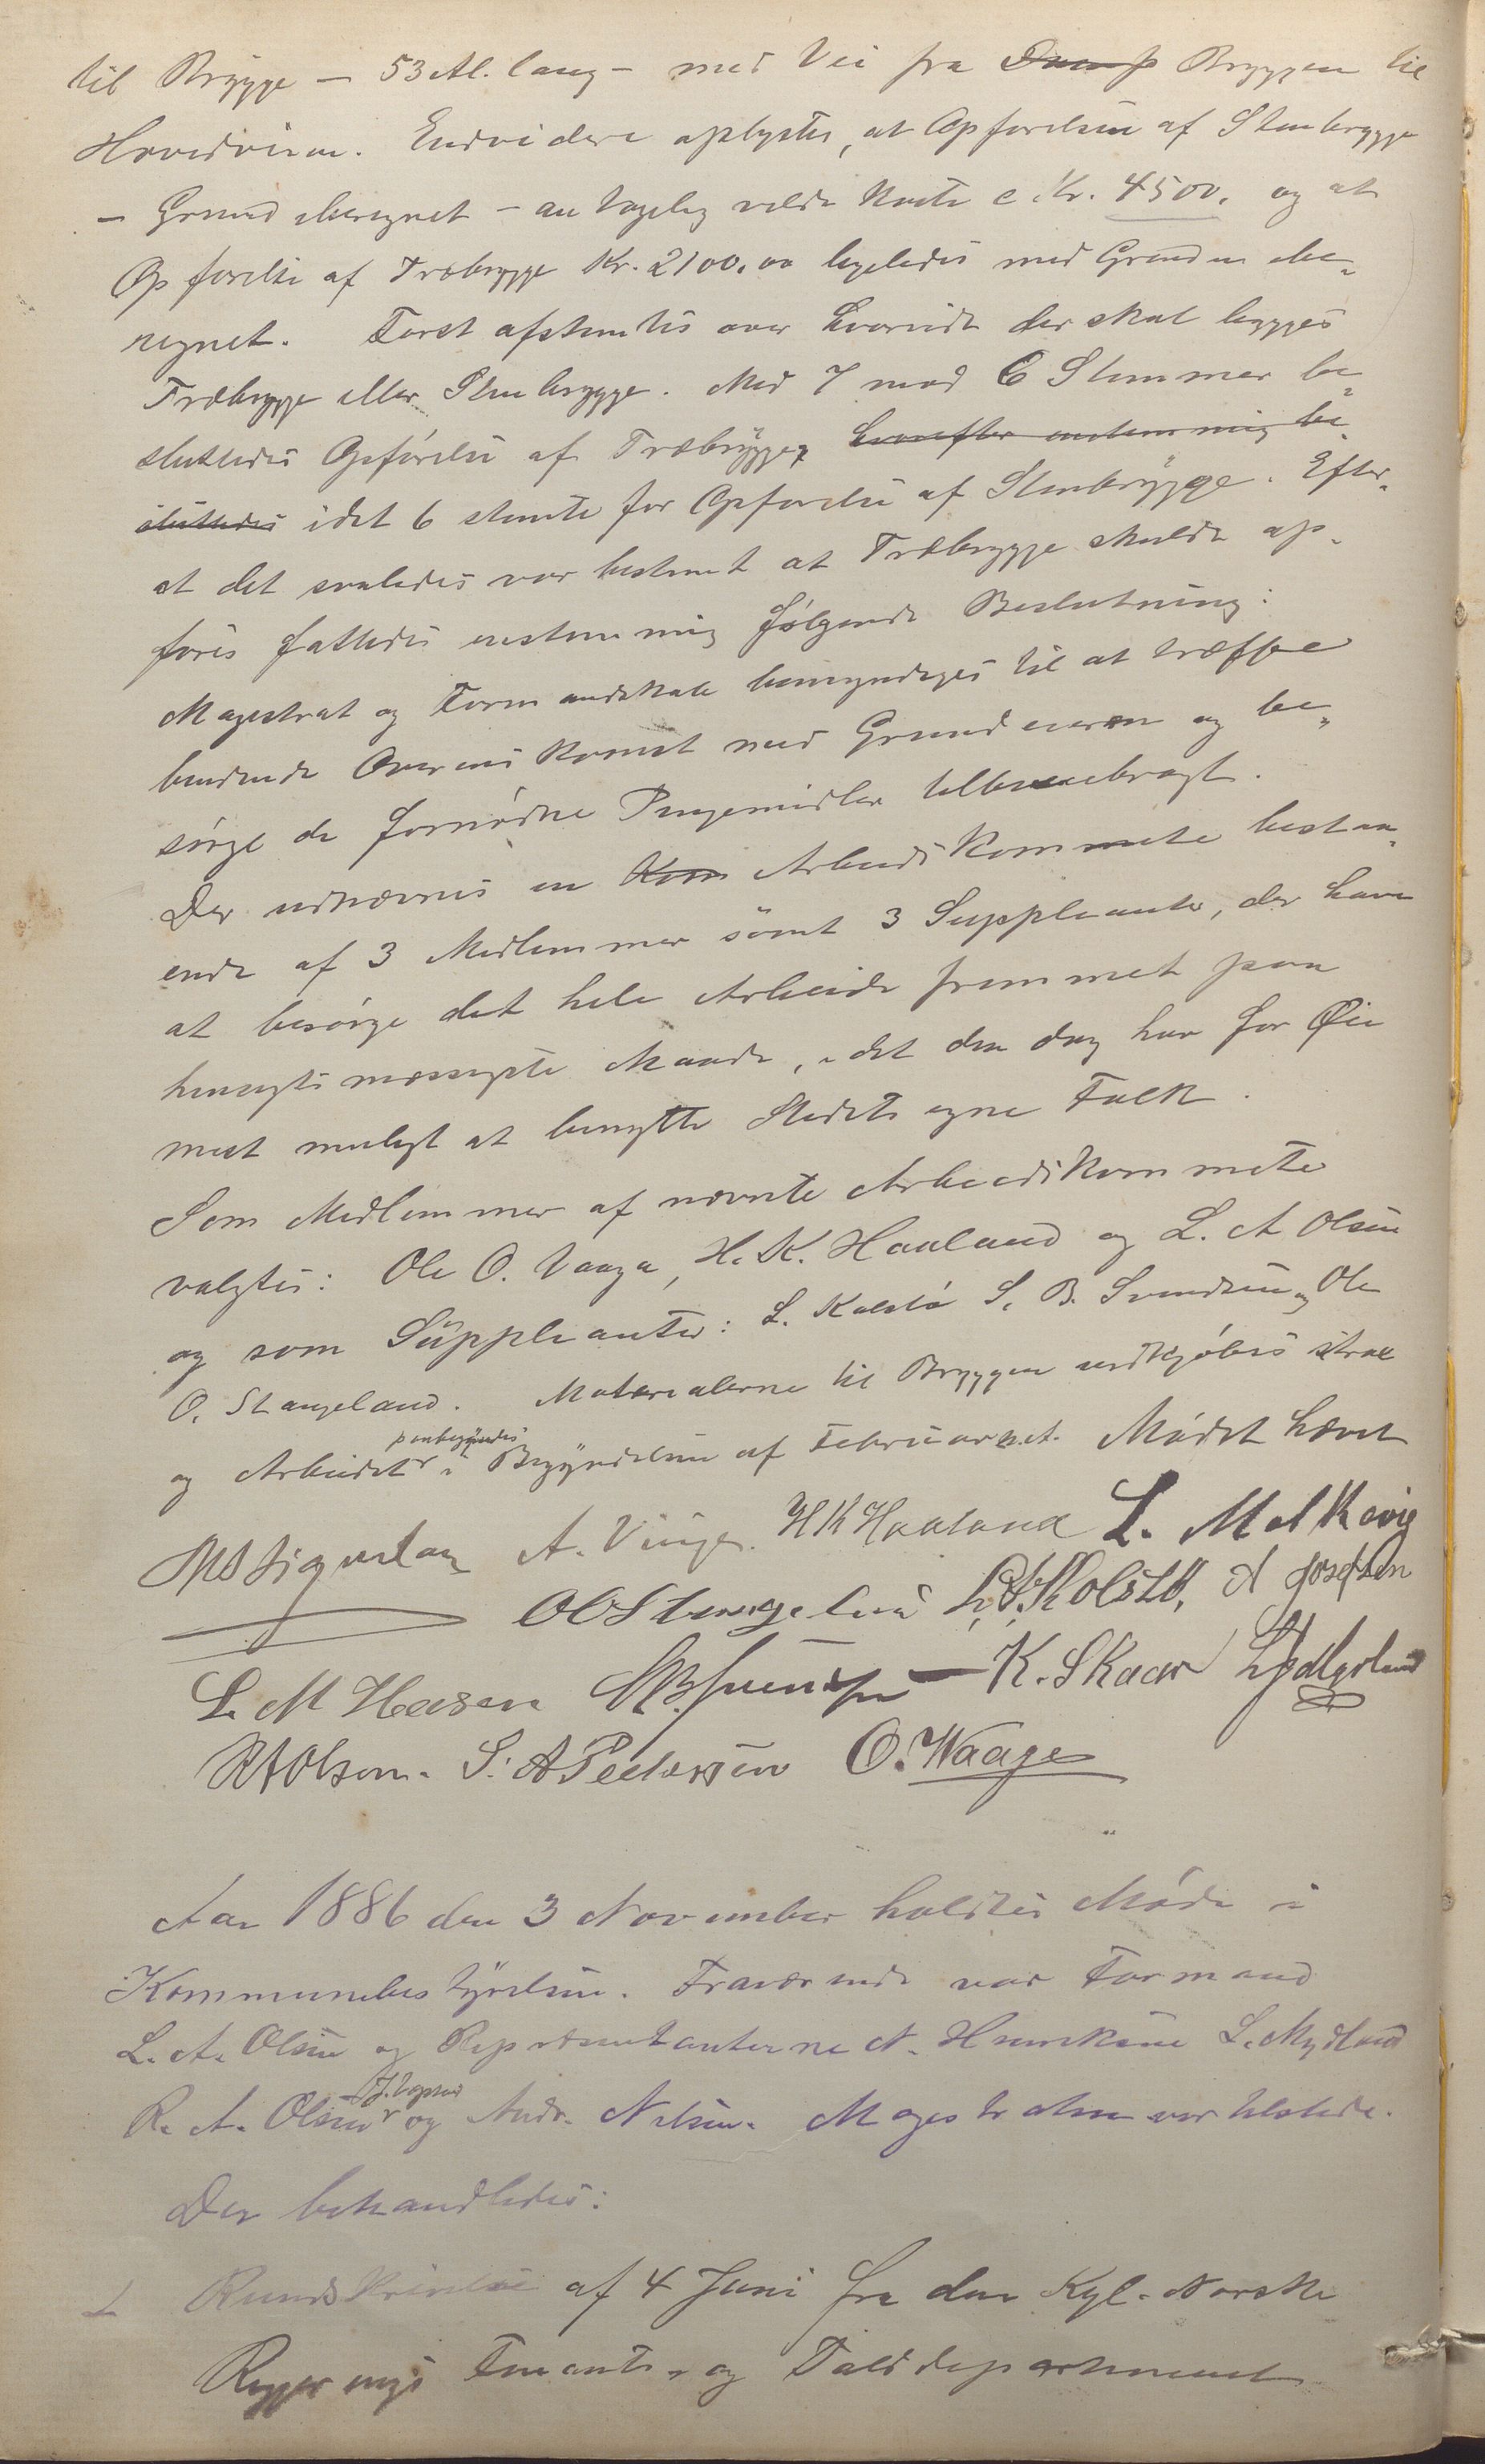 til Brygge – 53 Al. lang – med Vei fra Damp Bryggen til
Hovedveien. Endvidere oplystes, at Opførelsen af Stenbrygge
– Grund uberegnet – antagelig vilde koste c. Kr. 4500. og at
Opførelse af Træbrygge Kr. 2100.00 ligeledes med Grunden ube-
regnet. Først afstemtes over hvorvidt der skal bygges
Træbrygge eller Stenbrygge. Med 7 mod 6 Stemmer be-
sluttedes Opførelse af Træbrygge, hvorefter enstemmig be-
sluttedes idet 6 stemte for Opførelse af Stenbrygge. Efter
at det saaledes var bestemt at Træbrygge skulde op-
føres fattedes enstemmig følgende Beslutning:
Magistrat og Formandskab bemyndiges til at træffe
bindende Overenskomst med Grundeieren og be-
sørge de fornødne Pengemidler tilveiebragt.
Der udnævnes en Kom Arbeidskommite bestaa-
ende af 3 Medlemmer samt 3 Suppleanter, der have
at besørge det hele Arbeide fremmet paa
hensigtsmæssigste Maade, idet den dog har for Øie
mest muligt at benytte Stedets egne Folk.
Som Medlemmer af nævnte Arbeidskommite
valgtes: Ole O. Vaage, H. K. Haaland og L. A Olsen
og som Suppleanter: L. Kolstø S. B. Svendsen og Ole
O. Stangeland. Materialerne til Bryggen indkjøbes strax
og Arbeidet paabegyndes i Begyndelsen af Februar n.A. Mødet hævet
A. Vinje. H K Haaland L. Melkevig
O O Stangeland L. Kolstø, A Josefsen
L. M Hansen S B Svendsen – K. Skaar L Mydland
R A Olsen. S. A Pedersen O. Waage
Aar 1886 den 3 November holdtes Møde i
Kommunebestyrelsen. Fraværende var Formand
L. A. Olsen og Repræsentanterne N. Henriksen L. Mydland
R. A. Olsen J. Vopnes og Andr. Nilsen. Magistraten var tilstede.
Der behandledes:
1 Rundskrivelse af 4 Juni fra den Kgl. Norske
Regjerings Finants- og Tolddepartement